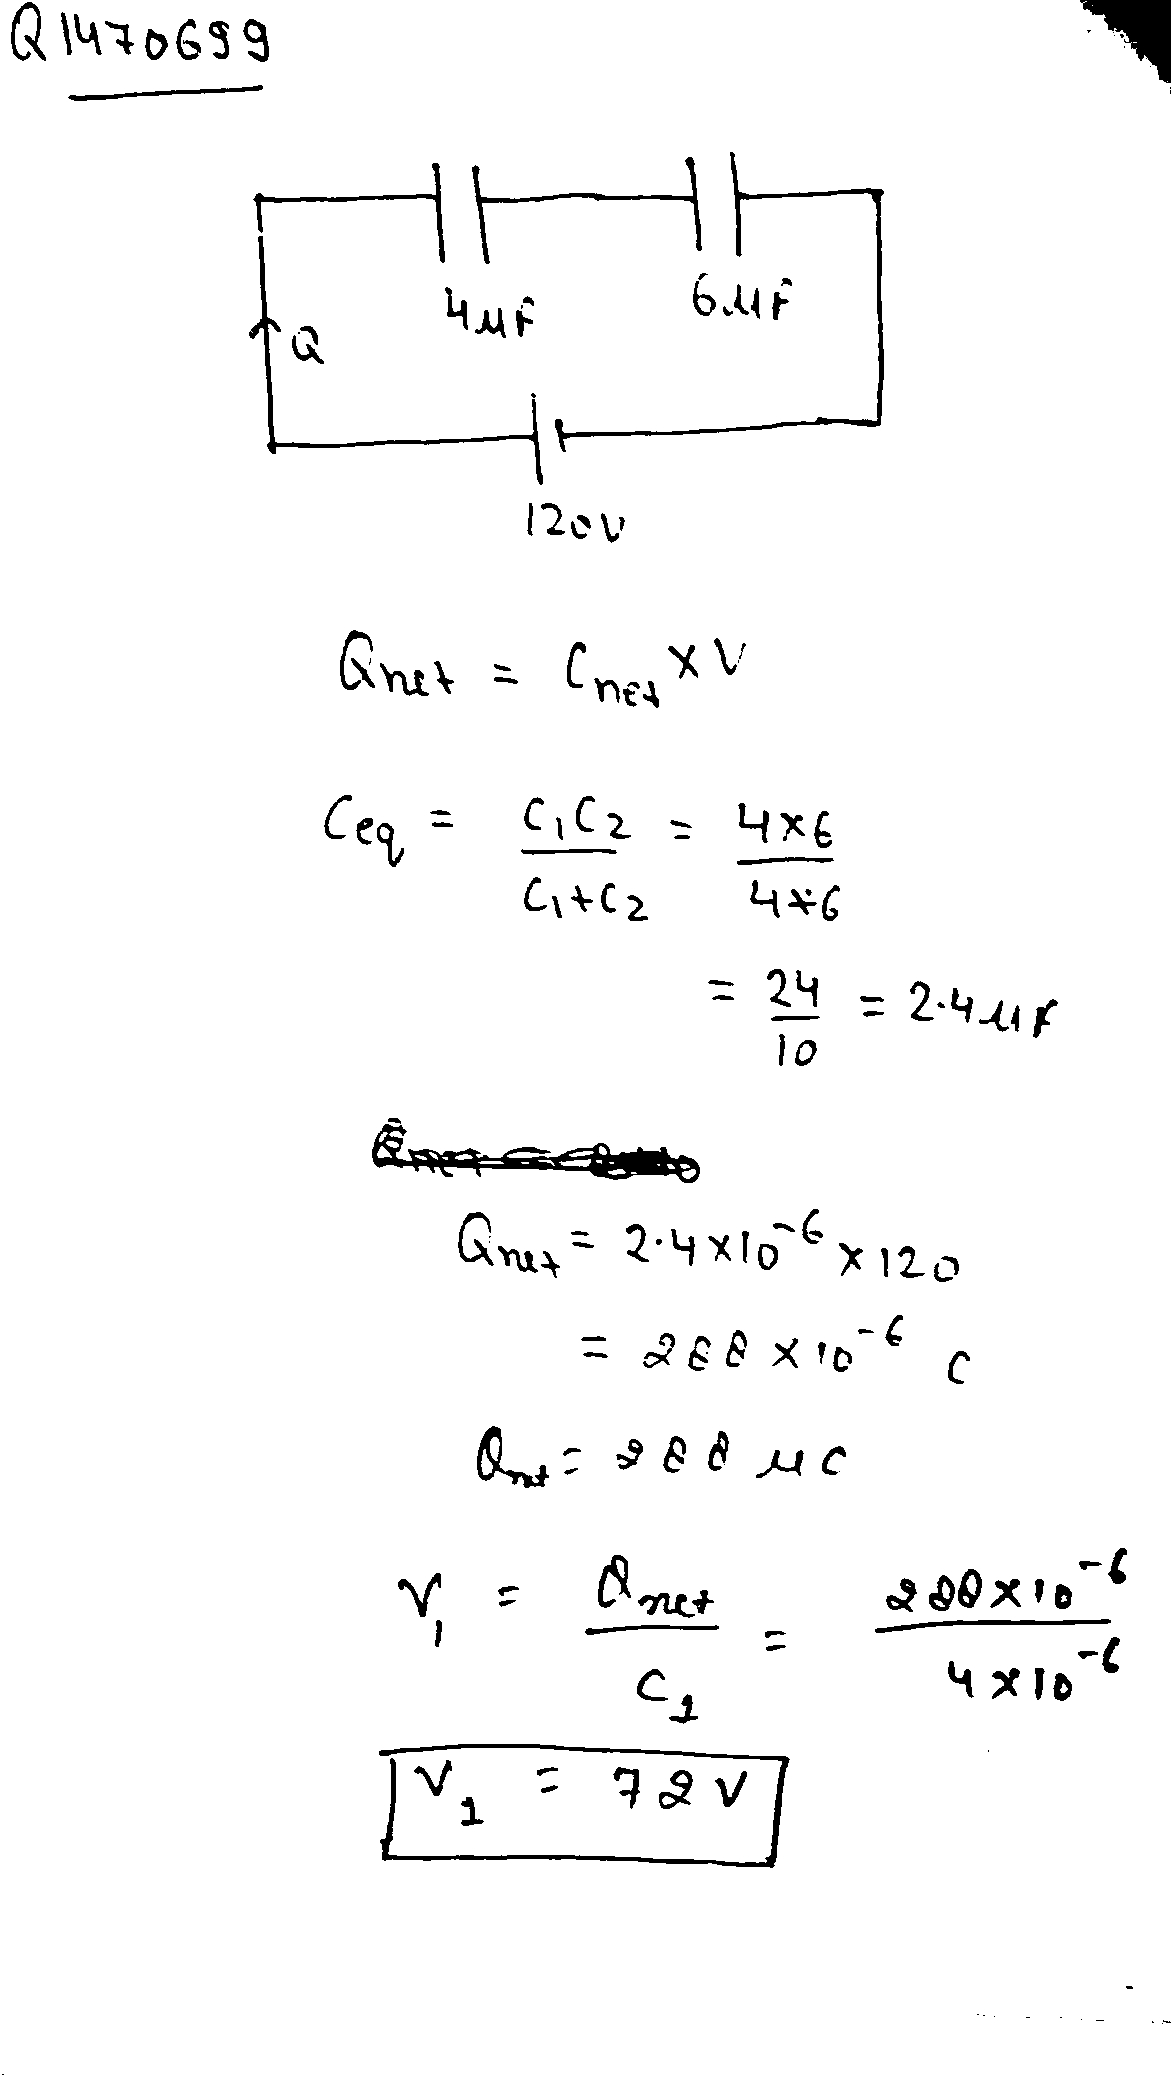 Q1470699
4μF
6μF
Q
120V
Qnet = Cnet × V
Ceq = C1C2 / C1+C2 = 4×6 / 4+6
= 24 / 10 = 2.4μF
Qnet = 2.4×10^-6 × 120
= 288 × 10^-6 C
Qnet = 288 μC
V1 = Qnet / C1 = 288×10^-6 / 4×10^-6
V1 = 72 V